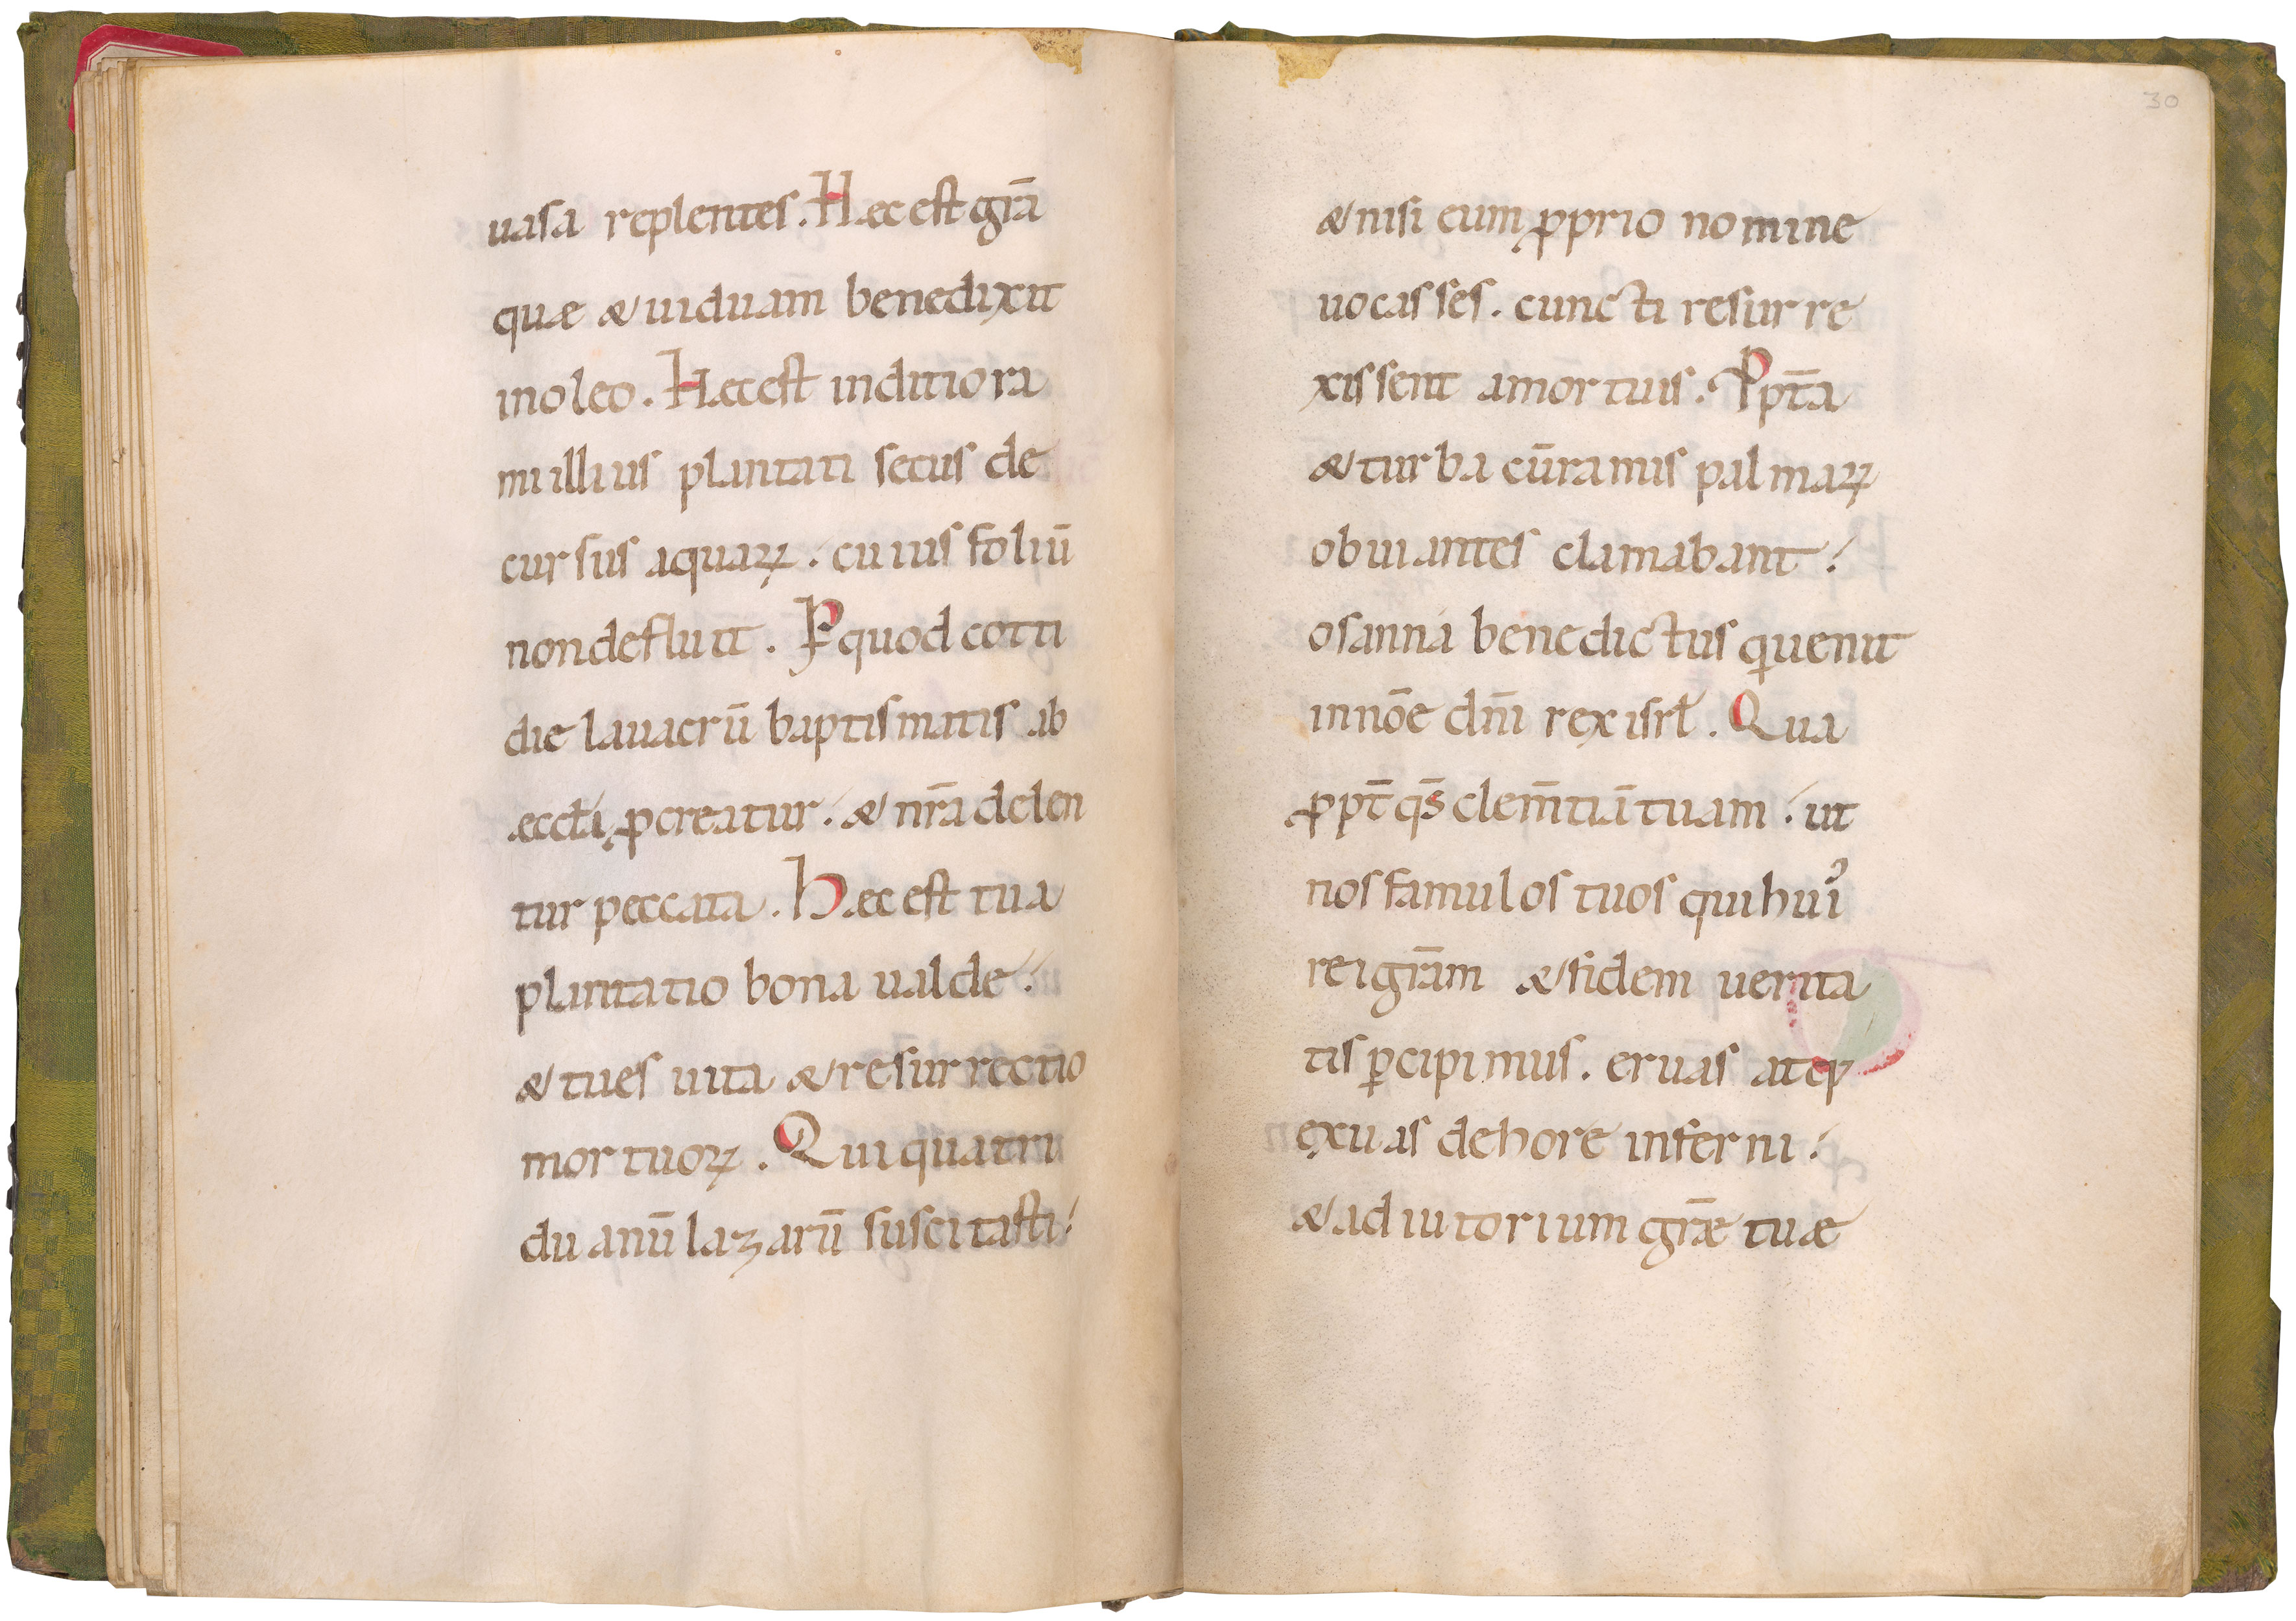 uasa replentes. Hæc est gr̄a
quæ & uiduam benedixit
in oleo. Hæc est in dition ra
mi illius plantati secus de
cursus aquaꝝ. cuius foliū
non defluit. P̱ quod cotti
die lauacrū baptismatis ab
æccł̄ia ꝓcreatur. & nr̄a delen
tur peccata. Hæc est tua
plantatio bona ualde.
& tu es uita & resurrectio
mortuoꝝ. Qui quatri
duanū lazarū suscitasti.
30
& nisi eum ꝓprio nomine
uocasses. cuncti resurre
xissent a mortuis. Ꝓpt̄a
& turba cū ramis palmaꝝ
obuiantes clamabant.
osanna benedictus qui uenit
in nōe dn̄i rex isrł. Qua
ꝓpt̄ qs̄ clem̄tiā tuam. ut
nos famulos tuos qui huiꝰ
rei gr̄am & fidem uerita
tis ꝑcipimus. eruas atqꝫ
exuas de hore inferni.
& adiutorium gr̄æ tuæ